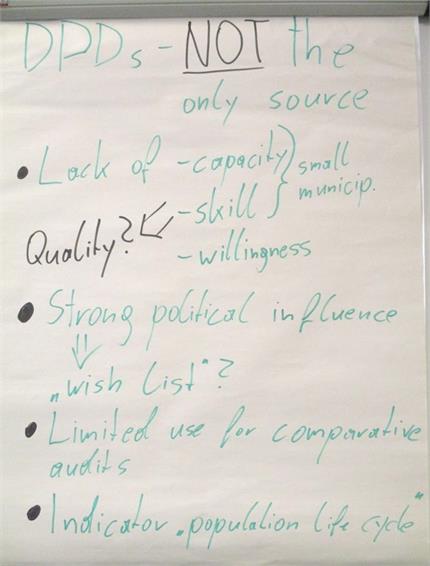 DPDs - NOT the
only source
• Lack of - capacity } small
municip.
Quality? - skill
- willingness
• Strong political influence
⇓
„wish list“?
• Limited use for comparative
audits
• Indicator „population life cycle“